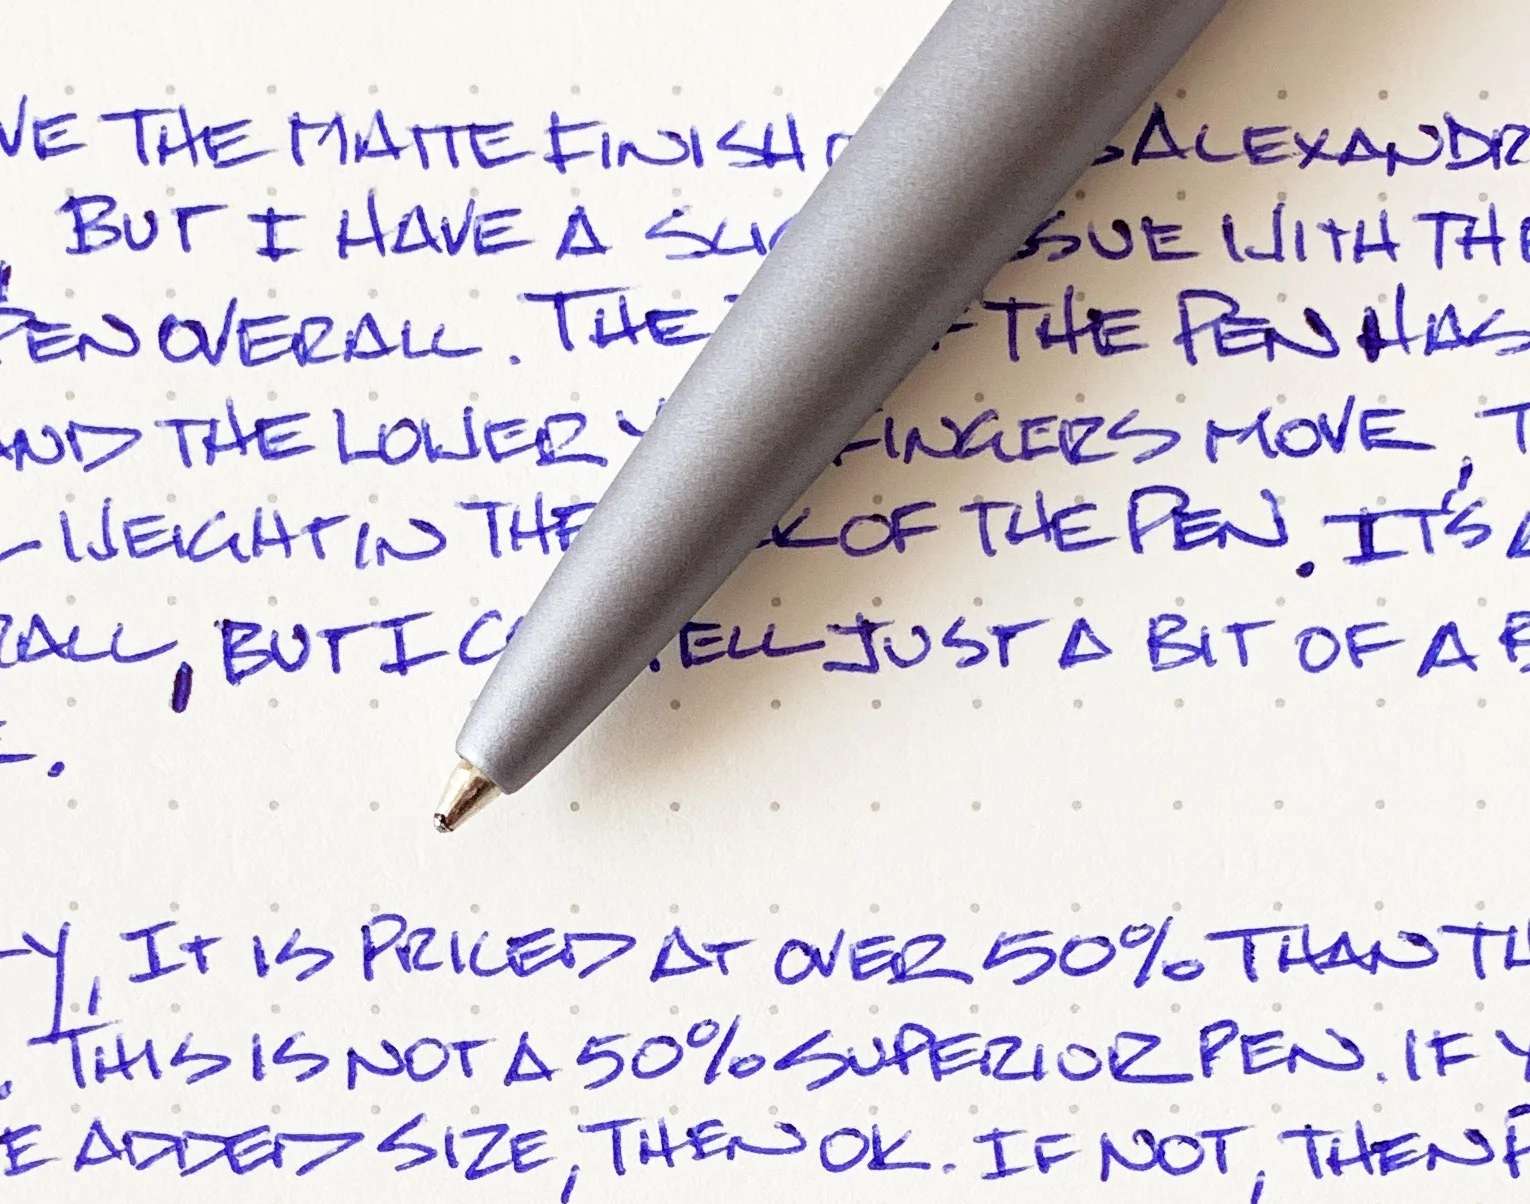 THE MATTE FINISH
BUT I HAVE A ISSUE WITH THE
PEN OVERALL. THE THE PEN HAS
AND THE LOWER FINGERS MOVE,
WEIGHT IN THE OF THE PEN. IT'S A
BUT I TELL JUST A BIT OF A

IT IS PRICED AT OVER 50% THAN
THIS IS NOT A 50% SUPERIOR PEN. IF
ADDED SIZE, THEN OK. IF NOT, THEN